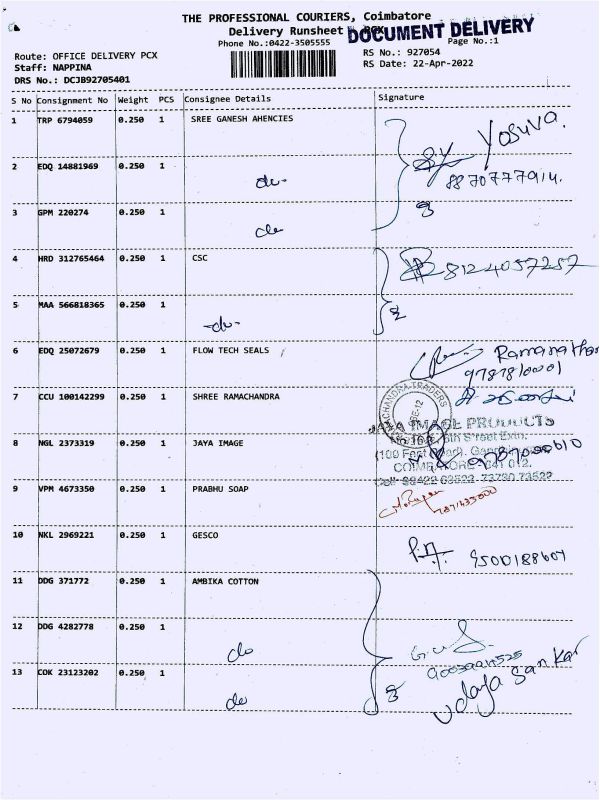 THE PROFESSIONAL COURIERS, Coimbatore
Delivery Runsheet PCX
DOCUMENT DELIVERY
Phone No.:0422-3505555
Page No.:1
Route: OFFICE DELIVERY PCX
RS No.: 927054
Staff: NAPPINA
RS Date: 22-Apr-2022
DRS No.: DCJB92705401
S No Consignment No Weight PCS Consignee Details Signature
1 TRP 6794059 0.250 1 SREE GANESH AHENCIES
Yasuva.
2 EDQ 14881969 0.250 1 do-
8870777914.
3 GPM 220274 0.250 1 do 3
4 HRD 312765464 0.250 1 CSC 8124057257
5 MAA 566818365 0.250 1 -do- 2
6 EDQ 25072679 0.250 1 FLOW TECH SEALS Ramanathan
9787810001
7 CCU 100142299 0.250 1 SHREE RAMACHANDRA
RAMACHANDRA TRADERS
JAYA IMAGE PRODUCTS
8 NGL 2373319 0.250 1 JAYA IMAGE
5th Street Extn.
(100 Feet Road),
COIMBATORE - 641 012.
Cell: 98422 63522, 73730 73522
9 VPM 4673350 0.250 1 PRABHU SOAP
10 NKL 2969221 0.250 1 GESCO 9500188601
11 DDG 371772 0.250 1 AMBIKA COTTON
12 DDG 4282778 0.250 1 do
13 COK 23123202 0.250 1 do 3
Udaya Sankar